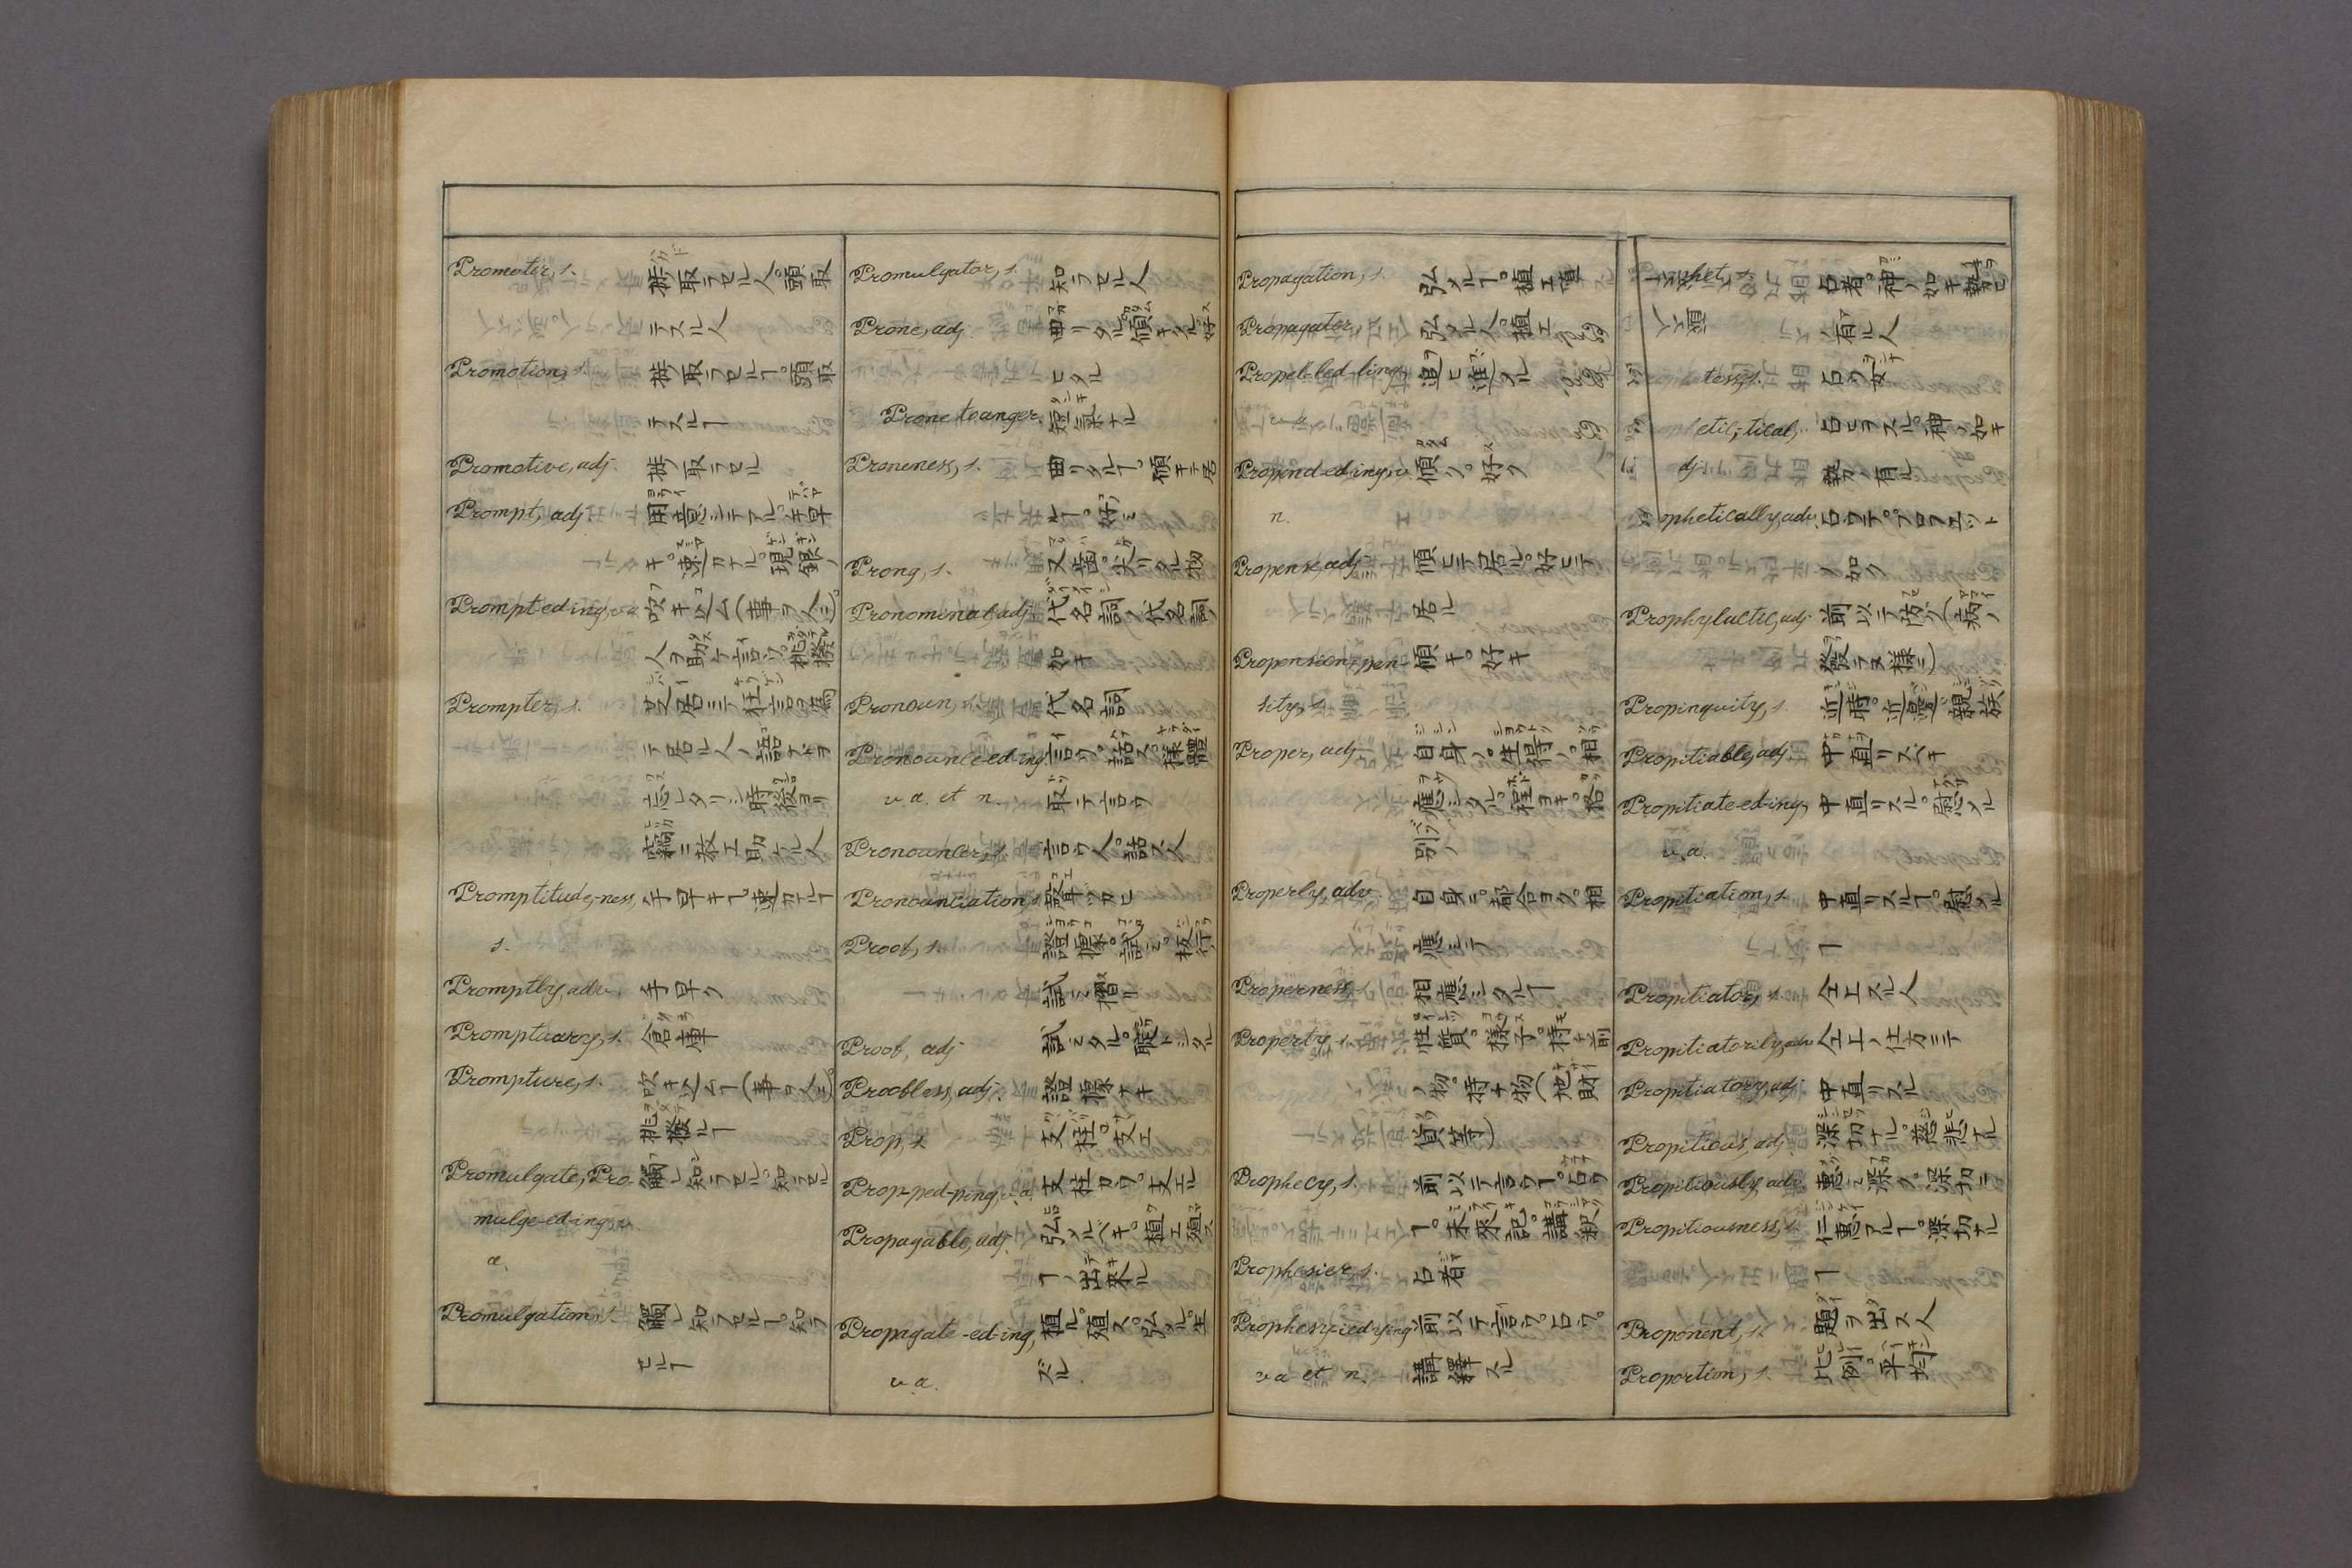 Promoter, s. 捗取ラセル人。頭取
テスル人
Promotion, s. 捗取ラセルヿ。頭取
テスルヿ
Promotive, adj. 捗取ラセル
Prompt, adj. 用意シテアル。手早
キ。速カナル。現銀ノ
Prompt-ed-ing, v.a. 吹キ込ム(事ヲ人ニ)
人ヲ助ケ言フ。挑撥
Prompter, s. 芝居ニテ狂言ヲ為
テ居ル人ノ語ナドヲ
忘レタリシ時後ヨリ
窃ニ教エ助ケル人
Promptitude,-ness, 手早キヿ。速カナルヿ
s.
Promptly, adv. 手早ク
Promptuary, s. 倉庫
Prompture, s. 吹キ込ムヿ(事ヲ人ニ)。
挑撥ルヿ
Promulgate, Pro- 觸レ知ラセル。知ラセル
mulge-ed-ing, v.
a.
Promulgation, s. 觸レ知ラセルヿ。知ラ
セルヿ
Promulgator, s. 知ラセル人
Prone, adj. 曲リタル。傾キタル。好
ヒタル
Prone to anger. 短氣ナル
Proneness, s. 曲リタルヿ。傾キテ居
ルヿ。好ミ
Prong, s. 尖リタル物
Pronominal, adj. 代名詞ノ。代名詞ノ
如キ
Pronoun, s. 代名詞
Pronounce-ed-ing 言フ。話ス。様體
v.a. et n. 取テ言フ
Pronouncer, s. 言フ人。話ス人
Pronounciation, s. 聲ヅカヒ
Proof, s. 證據。試ミ。板行ノ
試ミ摺リ
Proof, adj. 試ミタル。
Proofless, adj. 證據ナキ
Prop, s. 支柱。支エ
Prop-ped-ping, v.a. 支柱カウ。支エル
Propagable, adj. 弘メルベキ。植エ殖ス
ヿノ出来ル
Propagate-ed-ing, 植ル。殖ス。弘メル。生
v.a. ズル
Propagation, s. 弘メルヿ。植エ殖
Propagator, s. 弘メル人。植エ
Propel-led-ling, 追ヒ進メル
v.a.
Propend-ed-ing, v. 傾ク。好ク
n.
Propense, adj. 傾ヒテ居ル。好ヒテ
居ル
Propension,-pen- 傾キ。好キ
sity, s.
Proper, adj. 自身ノ。生得ノ。相
應シタル。程ヨキ。格
別ノ
Properly, adv. 自身ニ。都合ヨク。相
應シテ
Properness, s. 相應シタルヿ
Property, s. 性質。様子。持ナ前
ノ物。持ナ物(地財
貨等)
Prophecy, s. 前以テ言ウヿ。占フ
ヿ。未來記。講釈
Prophesier, s. 占者
Prophesy-ied-ying 前以テ言フ。占フ。
v.a et n. 講釋スル
phet, s. 占者。神ノ如キ勢ヒ
ノ有ル人
tess, s. 占フ女
etic,-tical, 占ヒヲスル。神ノ如キ
dj 勢ノ有ル
ophetically, adv. 占ウテ。プロフエット
ノ如ク
Prophylactic, adj. 前以テ防グ(病ノ
發ラヌ様ニ)
Propinquity, s. 近時。近邊。親族
Propitiable, adj. 中直リスベキ
Propitiate-ed-ing, 中直リスル。慰メル
v.a.
Propitiation, s. 中直リスルヿ。慰メル
ヿ
Propitiator, s. 仝上スル人
Propitiatorily, adv. 仝上ノ仕方ニテ
Propitiatory, adj. 中直リスル
Propitious, adj. 深切ナル。慈悲ナル
Propitiously, adv. 恵ミ深ク。深切ニ
Propitiousness, s. 仁恵アルヿ。深切ナル
ヿ
Proponent, s. 題ヲ出ス人
Proportion, s. 比例。平均